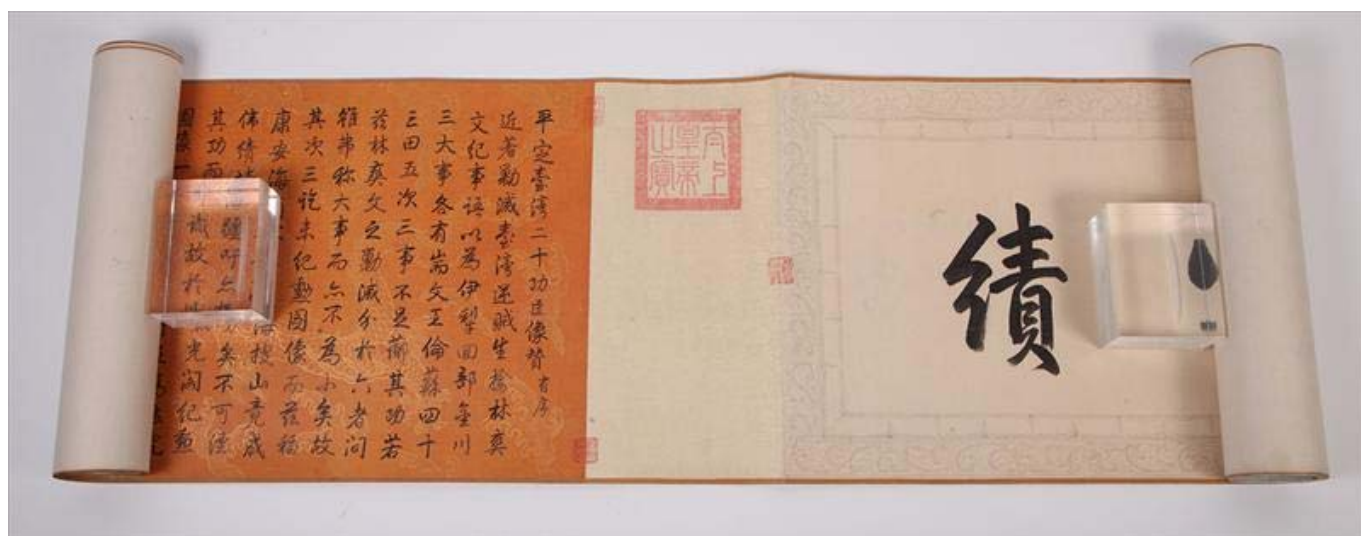 績
太上皇帝之寶
平定臺灣二十功臣像贊有序
近著勦滅臺灣逆賊生擒林爽
文紀事語以為伊犁回部金川
三大事各有耑文王倫蘇四十
三田五次三事不足其功若
茲林爽文之勦滅介於六者間
雖弗稱大事而亦不為小矣故
其次三訖未紀勳圖像而茲福
康安海
偉績海山竟成
其功矣不可湮
圖像識故於光閣紀勳